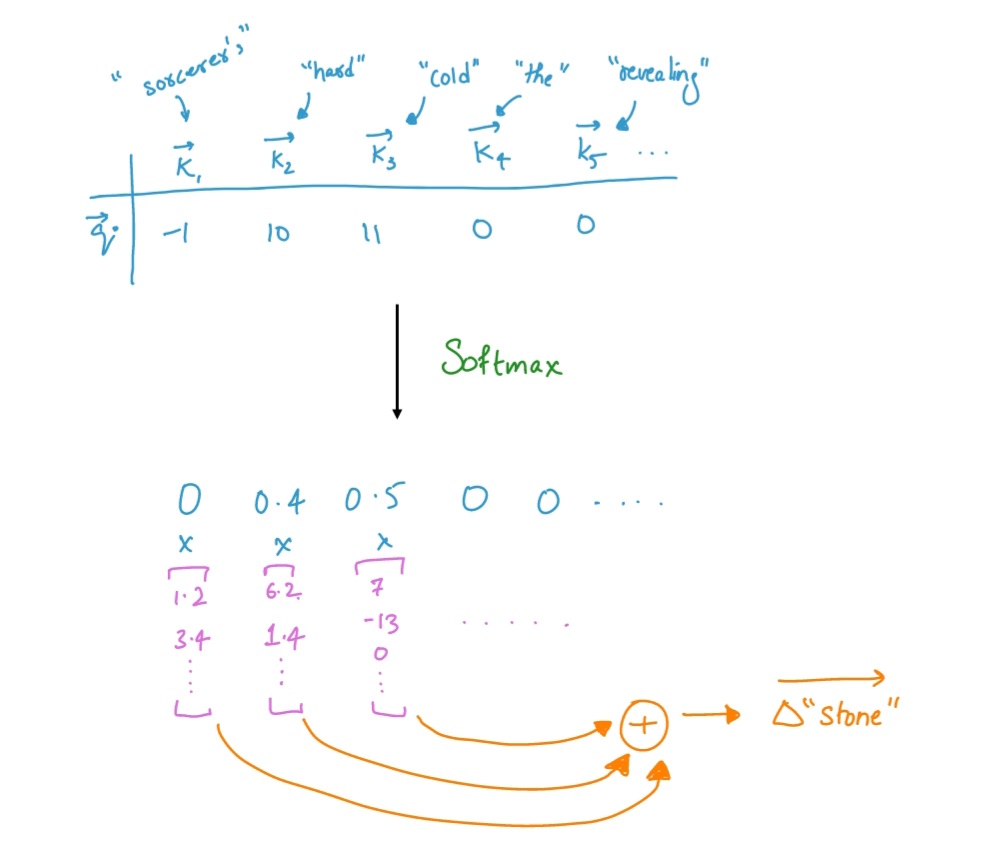 "sorcerer's" "hard" "cold" "the" "revealing"
K₁ K₂ K₃ K₄ K₅ ...
q -1 10 11 0 0
Softmax
0 0.4 0.5 0 0 ....
x x x
1.2 6.2 7
3.4 1.4 -13 .....
0
+ → Δ"Stone"